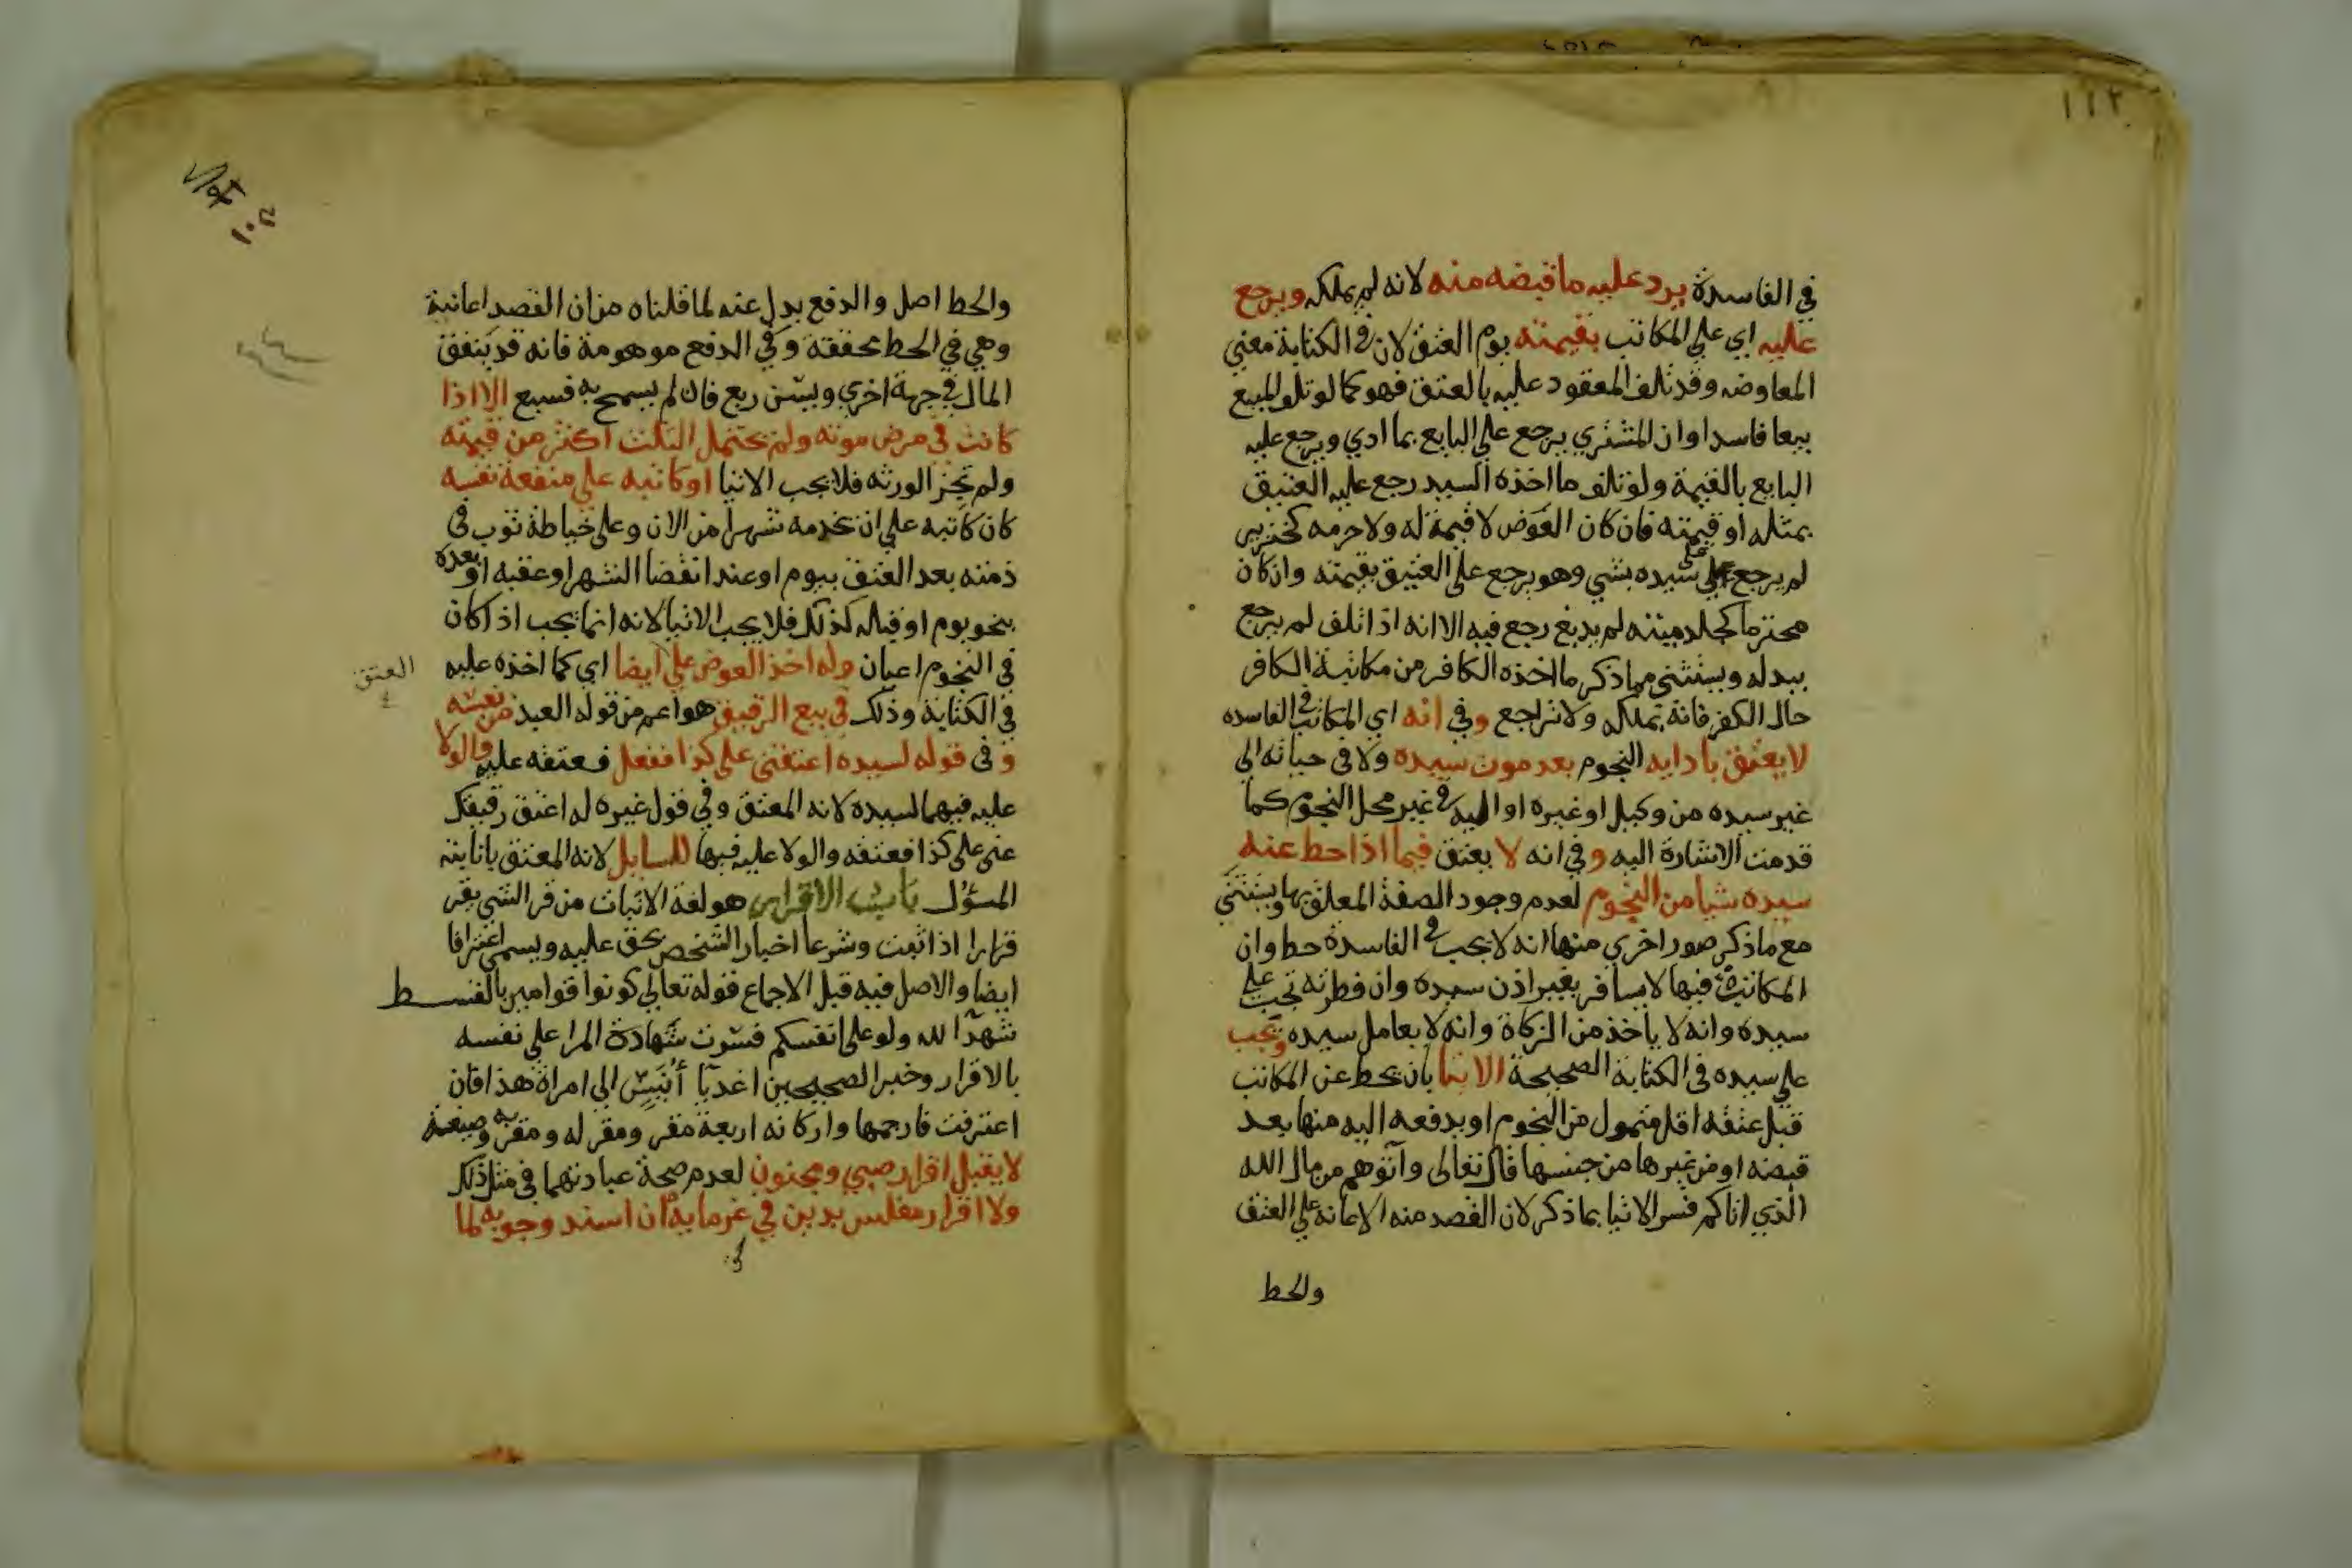 ١١٢
في الفاسدة يرد عليه ما قبضه منه لانه لم يملكه ويرجع
عليه اي علي المكاتب بقيمته يوم العتق لان في الكتابة معني
المعاوضه وقد تلف المعقود عليه بالعتق فهو كما لو تلف المبيع
بيعا فاسدا وان المشتري يرجع علي البايع بما ادي ويرجع عليه
البايع بالقيمة ولو تلف ما اخذه السيد رجع عليه العتيق
بمثله او قيمته فان كان العوض لا قيمة له ولا حرمه كخنزير
لم يرجع علي سيده بشي وهو يرجع علي العتيق بقيمته وان كان
محترما كجلد ميتته لم يدبغ رجع فيه الا انه اذا تلف لم يرجع
ببدله ويستثني مما ذكر ما اخذه الكافر من مكاتبة الكافر
حال الكفر فانه يملكه ولا تراجع وفي انه اي المكاتب في الفاسده
لا يعتق بادايه النجوم بعد موت سيده ولا في حياته الي
غير سيده من وكيل او غيره او اليه في غير محل النجوم كما
قدمت الاشارة اليه وفي انه لا يعتق فيما اذا حط عنه
سيده شيا من النجوم لعدم وجود الصفة المعلق بها ويستثني
مع ما ذكر صور اخري منها انه لا يجب في الفاسدة حط وان
المكاتب فيها لا يسافر بغير اذن سيده وان فطرته تجب علي
سيده وانه لا ياخذ من الزكاة وانه لا يعامل سيده ويجب
علي سيده في الكتابة الصحيحة الايتا بان يحط عن المكاتب
قبل عتقه اقل متمول من النجوم او يدفعه اليه منها بعد
قبضه او من غيرها من جنسها قال تعالى وآتوهم من مال الله
الذي اتاكم فسر الايتا بما ذكر لان القصد منه الاعانة علي العتق
والحط
١٠٢
والحط اصل والدفع بدل عنه لما قلناه من ان القصد اعانته
وهي في الحط محققة وفي الدفع موهومة فانه قد ينفق
المال في جهة اخري ويسن ربع فان لم يسمح به فسبع الا اذا
كانت في مرض موته ولم يحتمل الثلث اكثر من قيمته
ولم تجز الورثه فلا يجب الايتا او كاتبه علي منفعة نفسه
كان كاتبه علي ان يخدمه شهرا من الان وعلى خياطة ثوب في
ذمته بعد العتق بيوم او عند انقضا الشهر او عقبه او بعده
بنحو يوم او قبله كذلك فلا يجب الايتا لانه انما يجب اذا كان
في النجوم اعيان وله اخذ العوض علي ايضا اي كما اخذه عليه
العتق
في الكتابة وذلك في بيع الرقيق هو اعم من قوله العبد من نفسه
وفي قوله لسيده اعتقني على كذا ففعل فعتقه عليه والولا
عليه فيهما لسيده لانه المعتق وفي قول غيره له اعتق رقيقك
عني على كذا فعتقه والولا عليه فيها للسايل لانه المعتق بانابته
المسؤل باب الاقرار هو لغة الاثبات من قر الشي يقر
قرارا اذا ثبت وشرعا اخبار الشخص بحق عليه ويسمي اعترافا
ايضا والاصل فيه قبل الاجماع قوله تعالي كونوا قوامين بالقسط
شهدآ لله ولو علي انفسكم فسرت شهادة المرا علي نفسه
بالاقرار وخبر الصحيحين اغد يا أُنَيس الي امراة هذا فان
اعترفت فارجمها واركانه اربعة مقر ومقر له ومقر به وصيغة
لا يقبل اقرار صبي ومجنون لعدم صحة عبارتهما في مثل ذلك
ولا اقرار مفلس بدين في غرمايه ان اسند وجوبه لما